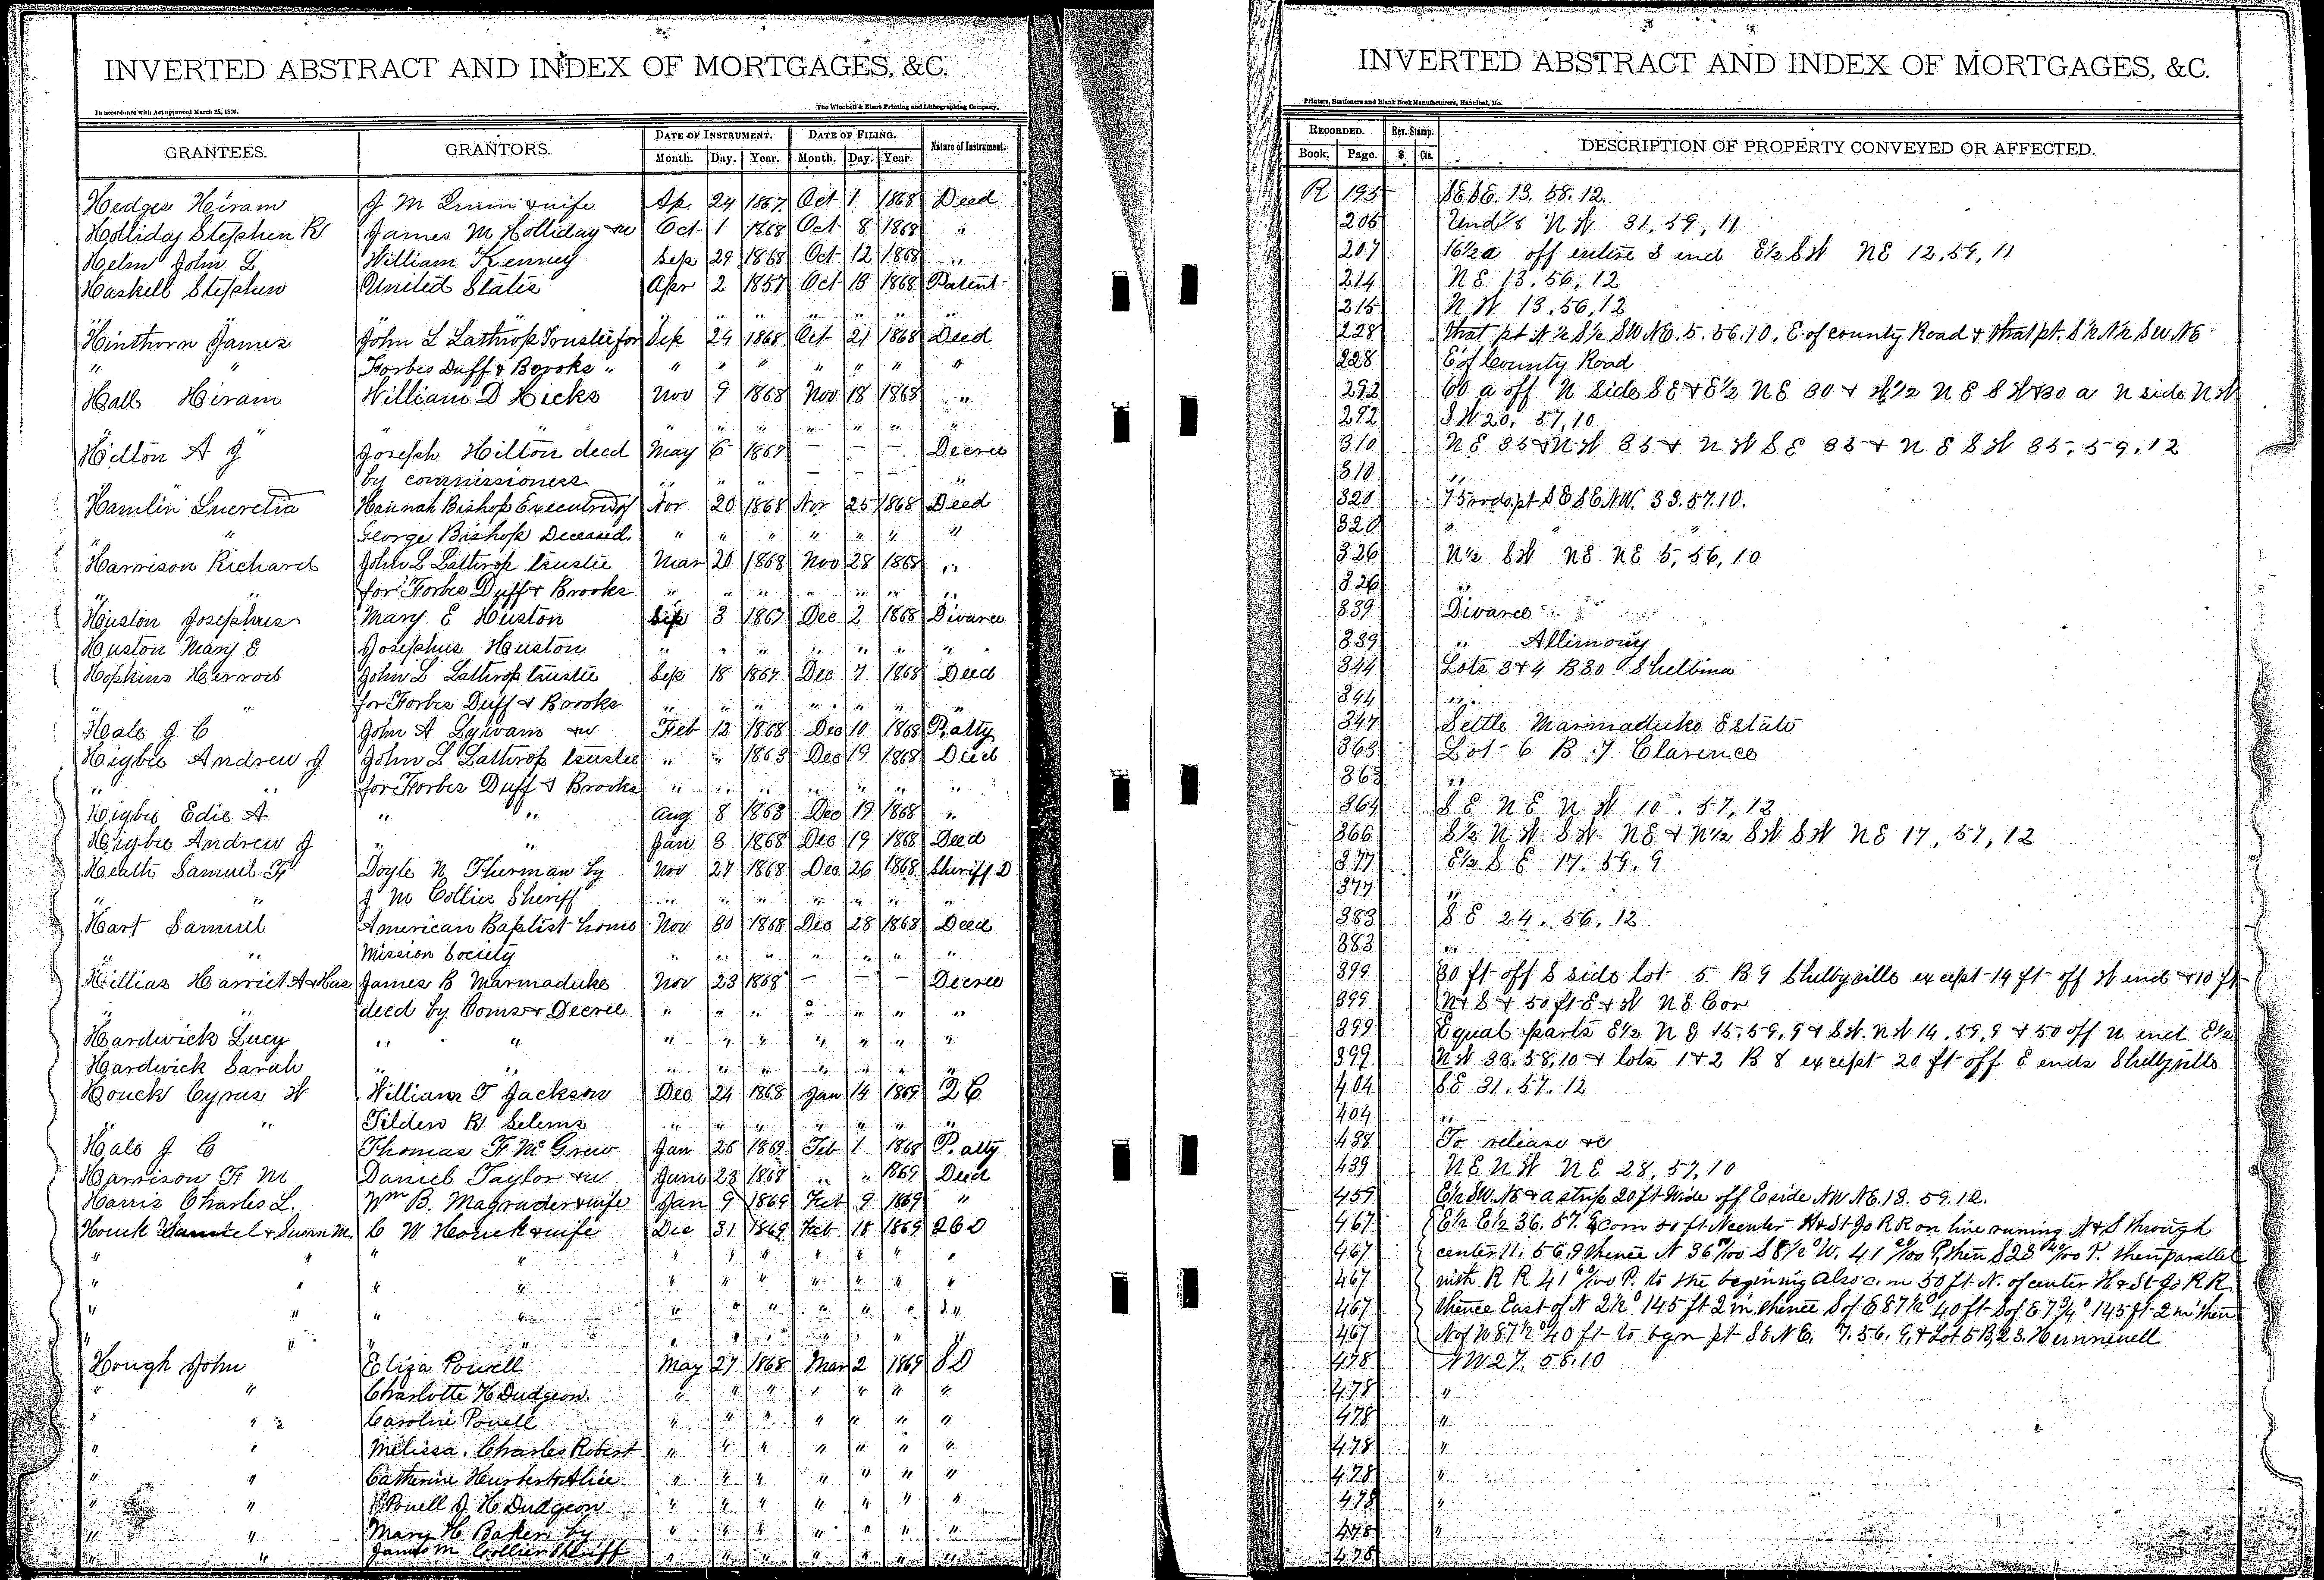 INVERTED ABSTRACT AND INDEX OF MORTGAGES, &C.
In accordance with Act approved March 25, 1870.
The Winchell & Ebert Printing and Lithographing Company,
GRANTEES. GRANTORS. DATE OF INSTRUMENT. DATE OF FILING. Nature of Instrument.
Month. Day. Year. Month. Day. Year.
Hedges Hiram J M Irwin & wife Ap 24 1867 Oct 1 1868 Deed
Holliday Stephen R James M Holliday & w Oct 1 1868 Oct 8 1868 "
Helm John L William Kenney Sep 29 1868 Oct 12 1868 "
Haskell Stephen United States Apr 2 1857 Oct 13 1868 Patent
" " " " " " " " "
Hinthorn James John L Lathrop Trustee for Sep 24 1868 Oct 21 1868 Deed
" " Forbes Duff & Brooks " " " " " " " "
Hall Hiram William D Hicks Nov 9 1868 Nov 18 1868 "
" " " " " " " " "
Hilton A J Joseph Hilton decd May 6 1867 — — — Decree
by commissioners " " " — — — "
Hamlin Lucretia Hannah Bishop Executrix of Nov 20 1868 Nov 25 1868 Deed
" George Bishop Deceased. " " " " " " "
Harrison Richard John L Lathrop trustee Mar 20 1868 Nov 28 1868 "
" " for Forbes Duff & Brooks " " " " " " "
Huston Josephus Mary E Huston Sep 3 1867 Dec 2 1868 Divorce
Huston Mary E Josephus Huston " " " " " " "
Hopkins Herrod John L Lathrop trustee Sep 18 1867 Dec 7 1868 Deed
" " for Forbes Duff & Brooks " " " " " " "
Hale J C John A Sylvani & w Feb 12 1868 Dec 10 1868 P. atty
Higbee Andrew J John L Lathrop trustee " " 1863 Dec 19 1868 Deed
" " for Forbes Duff & Brooks " " " " " " "
Higbee Edie A " " Aug 8 1863 Dec 19 1868 "
Higbee Andrew J " " Jan 3 1868 Dec 19 1868 Deed
Heath Samuel F Doyle N Thurman by Nov 27 1868 Dec 26 1868 Sheriff D
" " J M Collier Sheriff " " " " " " "
Hart Samuel American Baptist home Nov 30 1868 Dec 28 1868 Deed
" " Mission Society " " " " " " "
Hillias Harriet A & Hus James B Marmaduke Nov 23 1868 — — — Decree
" " decd by Comsr Decree " " " " " " "
Hardwick Lucy " " " " " " " " "
Hardwick Sarah " " " " " " " " "
Houck Cyrus W William T Jackson Dec 24 1868 Jan 14 1869 2 C
" " Tilden R Selems " " " " " " "
Hale J C Thomas F McGrew Jan 26 1869 Feb 1 1868 P. atty
Harrison F M Daniel Taylor & w June 23 1868 " " 1869 Deed
Harris Charles L. Wm B. Magruder & wife Jan 9 1869 Feb 9 1869 "
Houck & Susan M. C W Houck & wife Dec 31 1869 Feb 18 1869 2 C D
" " " " " " " " " "
" " " " " " " " " "
" " " " " " " " " "
" " " " " " " " " "
Hough John Eliza Powell May 27 1868 Mar 2 1869 S D
" " Charlotte H Dudgeon. " " " " " " "
" " Caroline Powell " " " " " " "
" " Melissa, Charles Robert " " " " " " "
" " Catherine Herbert & Alice " " " " " " "
" " Powell J H Dudgeon " " " " " " "
" " Mary H Baker by " " " " " " "
" " James M Collier Sheriff " " " " " " "
INVERTED ABSTRACT AND INDEX OF MORTGAGES, &C.
Printers, Stationers and Blank Book Manufacturers, Hannibal, Mo.
RECORDED. Rev. Stamp. DESCRIPTION OF PROPERTY CONVEYED OR AFFECTED.
Book. Page. $ Cts.
R 195 SE SE. 13. 58. 12.
205 Und ⅛ N W 31, 59, 11
207 16½ a off entire S end E½ S W NE 12, 59, 11
214 N E. 13, 56, 12
215 N W 13, 56, 12
228 that pt N ½ S ½ SW NE. 5. 56. 10. E. of county Road & that pt. S ½ N ½ SW NE
228 E of County Road
292 60 a off N side S E & E½ N E 30 & W½ N E S W & 30 a N side N W
292 S W 20, 57, 10
310 N E 35 & N W 35 & N W S E 35 & N E S W 35, 59, 12
310 "
320 75 rods pt S E SE NW. 33. 57. 10.
320 " "
326 N½ S W NE NE 5, 56, 10
326 "
339 Divorce
339 " Allimony
344 Lots 3 & 4 B 30 Shelbina
344 "
347 Settle Marmaduke Estate
363 Lot 6 B 7 Clarence
363 "
364 S E N E N W 10. 57, 12
366 S½ N W S W NE & N½ S W S W NE 17, 57, 12
377 E½ S E 17. 59. 9
377 "
383 S E 24. 56. 12
383 "
399 30 ft off S side lot 5 B 9 Shelbyville except 14 ft off W end & 10 ft
399 N & S & 50 ft E & W N E Cor
399 Equal parts E½ N E 15, 59, 9 & S W. N W 14, 59, 9 & 50 off N end E½
399 N W 33, 58, 10 & lots 1 & 2 B 8 except 20 ft off E ends Shelbyville
404 S E 31. 57. 12
404 "
438 To release &c
439 N E N W N E 28, 57, 10
459 E½ SW. NE & a strip 20 ft wide off E side NW NE. 13. 59. 12.
467 E½ E½ 36. 57. 9 com 50 ft N center H & St Jo R R on line runing N & S through
467 center 11. 56. 9 thence N 36 /100 S 8½° W. 41 /100 P. then S 23 /100 P. then parallel
467 with R R 41 /100 P. to the begining also com 50 ft N. of center H & St Jo R R
467 thence East of N 2½° 145 ft 2 in thence S of E 87½° 40 ft S of E 7¾° 145 ft 2 in then
467 N of W 87½° 40 ft to bgn pt SE NE. 7. 56. 9, & Lot 5 B, 23. Hunnewell
478 N W 27. 58. 10
478 "
478 "
478 "
478 "
478 "
478 "
478